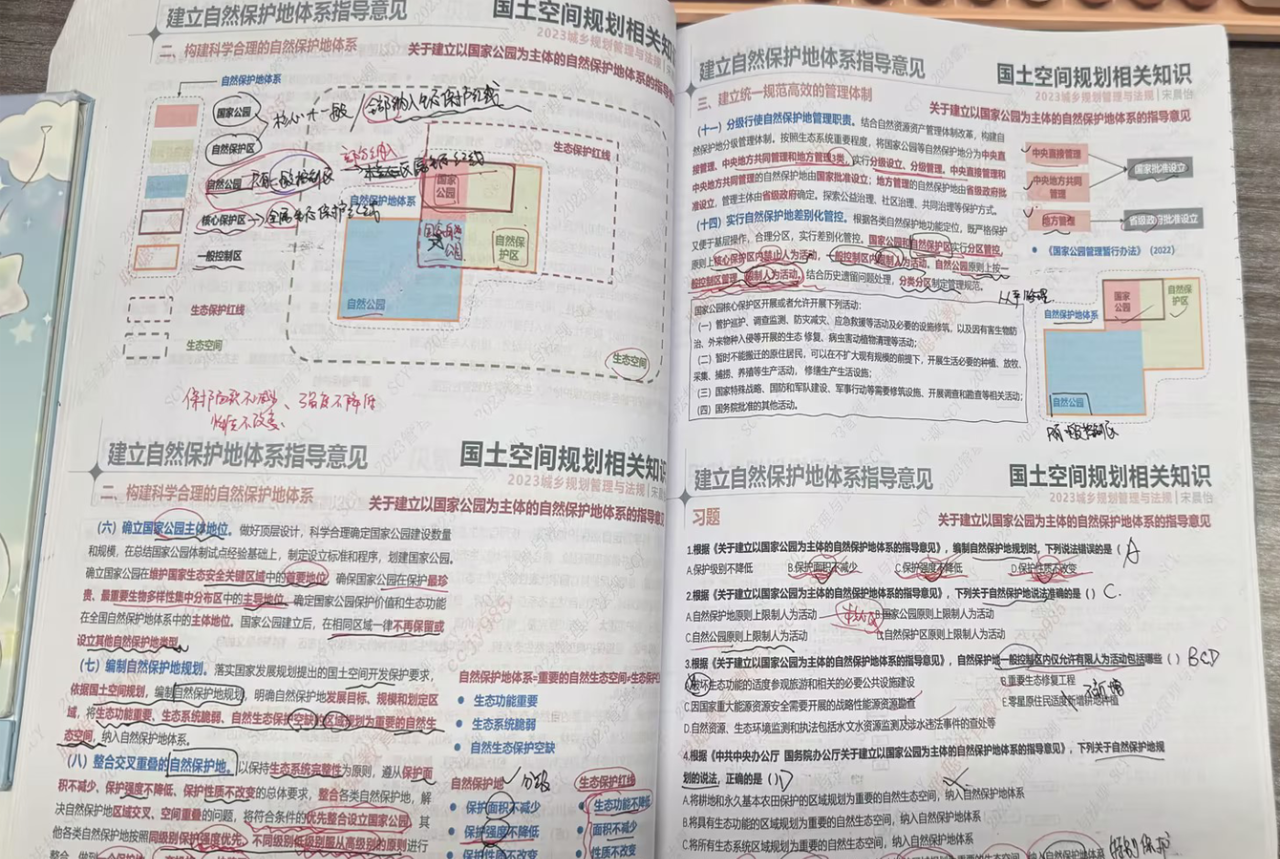 建立自然保护地体系指导意见
国土空间规划相关知
2023城乡规划管理与法规
二、构建科学合理的自然保护地体系
关于建立以国家公园为主体的自然保护地体系的指导
自然保护地体系
国家公园
核心+一般/全部纳入生态保护红线
自然保护区
生态保护红线
自然公园
核心保护区
一般控制区
国家公园
自然保护地体系
自然保护区
自然公园
生态保护红线
生态空间
生态空间
保护面积不减少、强度不降低
性质不改变
建立自然保护地体系指导意见
国土空间规划相关知
2023城乡规划管理与法规
二、构建科学合理的自然保护地体系
关于建立以国家公园为主体的自然保护地体系的指导意
(六)确立国家公园主体地位。做好顶层设计,科学合理确定国家公园建设数量
和规模,在总结国家公园体制试点经验基础上,制定设立标准和程序,划建国家公园。
确立国家公园在维护国家生态安全关键区域中的首要地位,确保国家公园在保护最珍
贵、最重要生物多样性集中分布区中的主导地位,确定国家公园保护价值和生态功能
在全国自然保护地体系中的主体地位。国家公园建立后,在相同区域一律不再保留或
设立其他自然保护地类型。
(七)编制自然保护地规划。落实国家发展规划提出的国土空间开发保护要求,
依据国土空间规划,编制自然保护地规划,明确自然保护地发展目标、规模和划定区
域,将生态功能重要、生态系统脆弱、自然生态保护空缺区域规划为重要的自然生
态空间,纳入自然保护地体系。
自然保护地体系=重要的自然生态空间+生态保护
生态功能重要
生态系统脆弱
自然生态保护空缺
(八)整合交叉重叠的自然保护地。以保持生态系统完整性为原则,遵从保护面
积不减少、保护强度不降低、保护性质不改变的总体要求,整合各类自然保护地,解
决自然保护地区域交叉、空间重叠的问题,将符合条件的优先整合设立国家公园,其
他各类自然保护地按照同级别保护强度优先、不同级别低级别服从高级别的原则进行
自然保护地
保护面积不减少
保护强度不降低
保护性质不改变
生态保护红线
生态功能不降低
面积不减少
性质不改变
建立自然保护地体系指导意见
国土空间规划相关知识
2023城乡规划管理与法规 | 宋晨怡
三、建立统一规范高效的管理体制
关于建立以国家公园为主体的自然保护地体系的指导意见
(十一)分级行使自然保护地管理职责。结合自然资源资产管理体制改革,构建自
然保护地分级管理体制,按照生态系统重要程度,将国家公园等自然保护地分为中央直
接管理、中央地方共同管理和地方管理3类,实行分级设立、分级管理。中央直接管理和
中央地方共同管理的自然保护地由国家批准设立;地方管理的自然保护地由省级政府批
准设立,管理主体由省级政府确定。探索公益治理、社区治理、共同治理等保护方式。
中央直接管理
中央地方共同管理
地方管理
国家批准设立
省级政府批准设立
(十四)实行自然保护地差别化管控。根据各类自然保护地功能定位,既严格保护
又便于基层操作,合理分区,实行差别化管控。国家公园和自然保护区实行分区管控,
原则上核心保护区内禁止人为活动,一般控制区内限制人为活动。自然公园原则上按一
般控制区管理,限制人为活动。结合历史遗留问题处理,分类分区制定管理规范。
《国家公园管理暂行办法》(2022)
国家公园核心保护区开展或者允许开展下列活动:
(一)管护巡护、调查监测、防灾减灾、应急救援等活动及必要的设施修筑,以及因有害生物防
治、外来物种入侵等开展的生态修复、病虫害动植物清理等活动;
(二)暂时不能搬迁的原住居民,可以在不扩大现有规模的前提下,开展生活必要的种植、放牧、
采集、捕捞、养殖等生产活动,修缮生产生活设施;
(三)国家特殊战略、国防和军队建设、军事行动等需要修筑设施、开展调查和勘查等相关活动;
(四)国务院批准的其他活动。
国家公园
自然保护区
自然保护地体系
自然公园
建立自然保护地体系指导意见
国土空间规划相关知识
2023城乡规划管理与法规 | 宋晨怡
习题
关于建立以国家公园为主体的自然保护地体系的指导意见
1.根据《关于建立以国家公园为主体的自然保护地体系的指导意见》,编制自然保护地规划时,下列说法错误的是() A
A.保护级别不降低 B.保护面积不减少 C.保护强度不降低 D.保护性质不改变
2.根据《关于建立以国家公园为主体的自然保护地体系的指导意见》,下列关于自然保护地说法准确的是() C.
A.自然保护地原则上限制人为活动 B.国家公园原则上限制人为活动
C.自然公园原则上限制人为活动 D.自然保护区原则上限制人为活动
3.根据《关于建立以国家公园为主体的自然保护地体系的指导意见》,自然保护地一般控制区内仅允许有限人为活动包括哪些() BCD
A.破坏生态功能的适度参观旅游和相关的必要公共设施建设 B.重要生态修复工程
C.因国家重大能源资源安全需要开展的战略性能源资源勘查 E.零星原住民适度新增耕地种植 不新增
D.自然资源、生态环境监测和执法包括水文水资源监测及涉水违法事件的查处等
4.根据《中共中央办公厅 国务院办公厅关于建立以国家公园为主体的自然保护地体系的指导意见》,下列关于自然保护地规
划的说法,正确的是(D)
A.将耕地和永久基本农田保护的区域规划为重要的自然生态空间,纳入自然保护地体系
B.将具有生态功能的区域规划为重要的自然生态空间,纳入自然保护地体系
C.将所有生态系统区域规划为重要的自然生态空间,纳入自然保护地体系